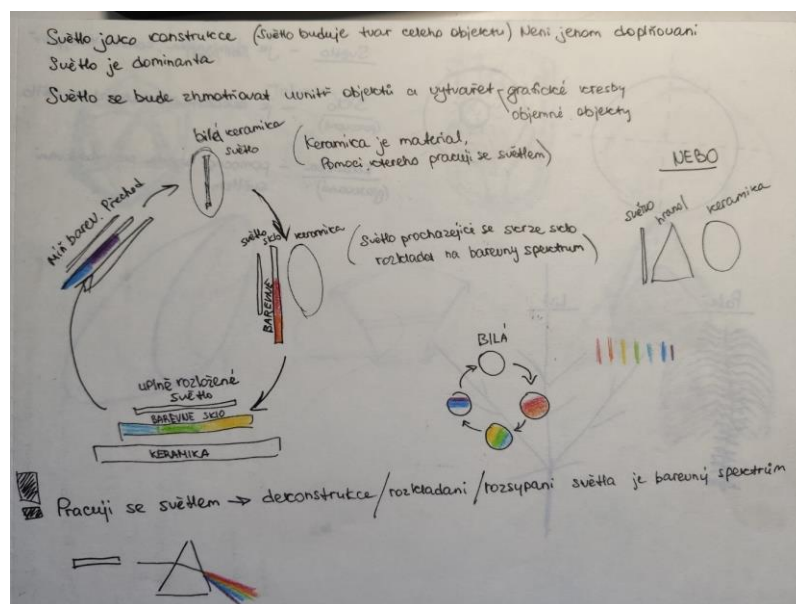 Světlo jako konstrukce (světlo buduje tvar celeho objektu) Není jenom doplňovaní
Světlo je dominanta
Světlo se bude zhmotňovat uvnitř objektů a vytvařet grafické kresby
objemné objekty
bílá keramika
světlo
(Keramika je material,
Pomoci ktereho pracuji se světlem)
NEBO
Miň barev. Přechod
světlo sklo keramika
BAREVNE
(Světlo prochazející se skrze sklo
rozkladat na barevny spektrum)
světlo hranol keramika
BÍLÁ
uplně rozložené
světlo
BAREVNE SKLO
KERAMIKA
Pracuji se světlem → dekonstrukce/rozkladani/rozsypani světla je barevný spektrům